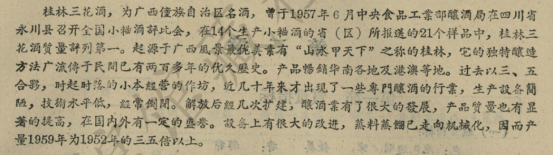 桂林三花酒，为广西僮族自治区名酒，曾于1957年6月中央食品工業部釀酒局在四川省
永川县召开全国小麯酒評比会，在14个生产小麯酒的省（区）所报送的21个样品中，桂林三
花酒質量評列第一。起源于广西風景最优美素有“山水甲天下”之称的桂林，它的独特釀造
方法广流傳于民間已有两百多年的优久歷史。产品暢銷华南各地及港澳等地。过去以三、五
合夥，时起时落的小本经营的作坊，近几十年来才出现了一些專門釀酒的行業，生产設备簡
陋，技術水平低，經常倒閉。解放后經几次扩建，釀酒業有了很大的發展，产品貨量也有显
著的提高，在国内外有一定的盛誉。設备上有很大的改进，蒸料蒸餾已走向机械化，因而产
量1959年为1952年的三五倍以上。